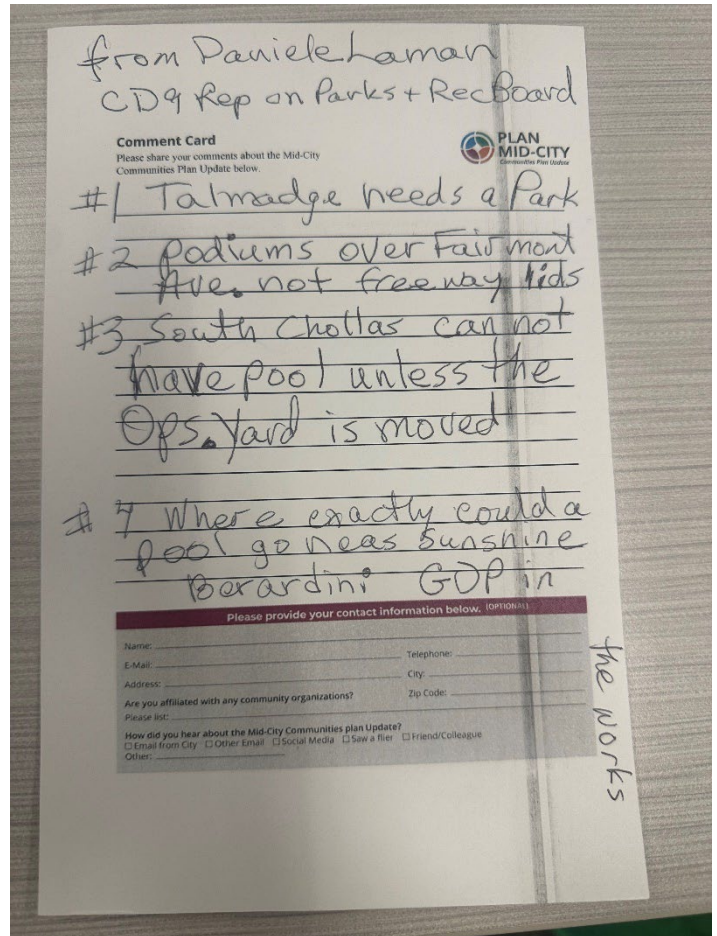 from Daniele Laman
CD9 Rep on Parks + Rec Board
Comment Card
Please share your comments about the Mid-City
Communities Plan Update below.
PLAN
MID-CITY
Communities Plan Update
#1 Talmadge needs a Park
#2 Podiums over Fairmont
Ave. not freeway lids
#3 South Chollas can not
have pool unless the
Ops. Yard is moved
#4 Where exactly could a
pool go near Sunshine
Berardini GDP in
the works
Please provide your contact information below. (OPTIONAL)
Name:
Telephone:
E-Mail:
City:
Address:
Zip Code:
Are you affiliated with any community organizations?
Please list:
How did you hear about the Mid-City Communities plan Update?
☐ Email from City ☐ Other Email ☐ Social Media ☐ Saw a flier ☐ Friend/Colleague
Other: